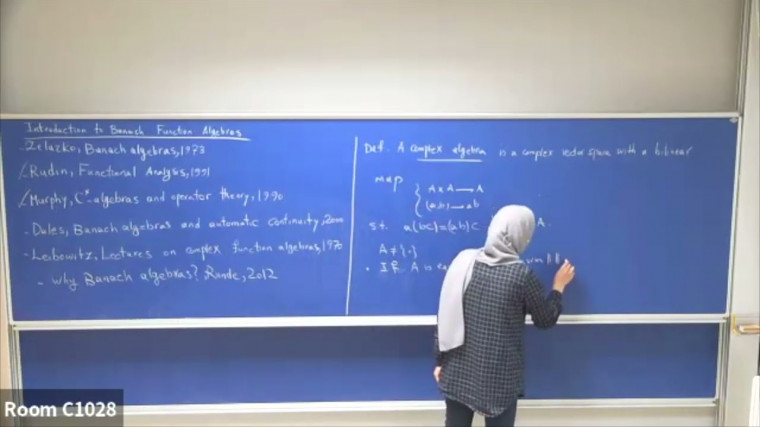 Introduction to Banach Function Algebras
- Żelazko, Banach algebras, 1973
Rudin, Functional Analysis, 1991
Murphy, C*-algebras and operator theory, 1990
- Dales, Banach algebras and automatic continuity, 2000
- Leibowitz, Lectures on complex function algebras, 1970
- Why Banach algebras? Runde, 2012
Def. A complex algebra is a complex vector space with a bilinear
map
A × A → A
(a,b) → ab
s.t. a(bc)=(ab)c A.
A ≠ {·}
• If A is
Room C1028